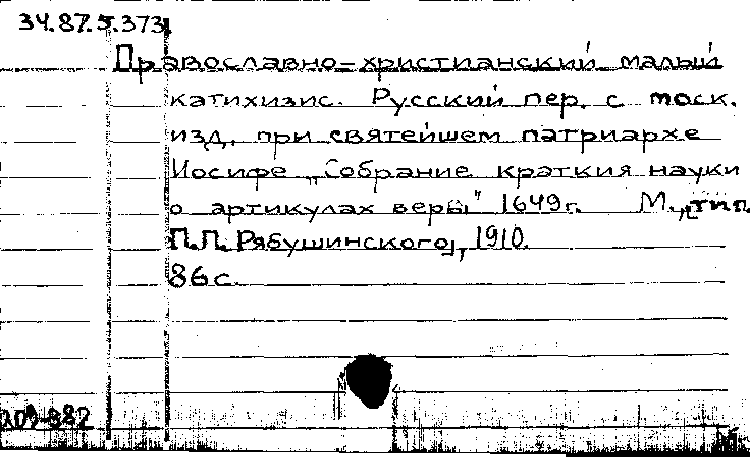 34.87.5.373
Православно-христианский малый
катихизис. Русский пер. с моск.
изд. при святейшем патриархе
Иосифе „Собрание краткия науки
о артикулах веры" 1649г. М., [тип.
П.П. Рябушинского], 1910.
86с.
209-882